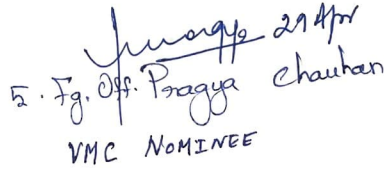 29 Apr
5. Fg. Off. Pragya Chauhan
VMC NOMINEE